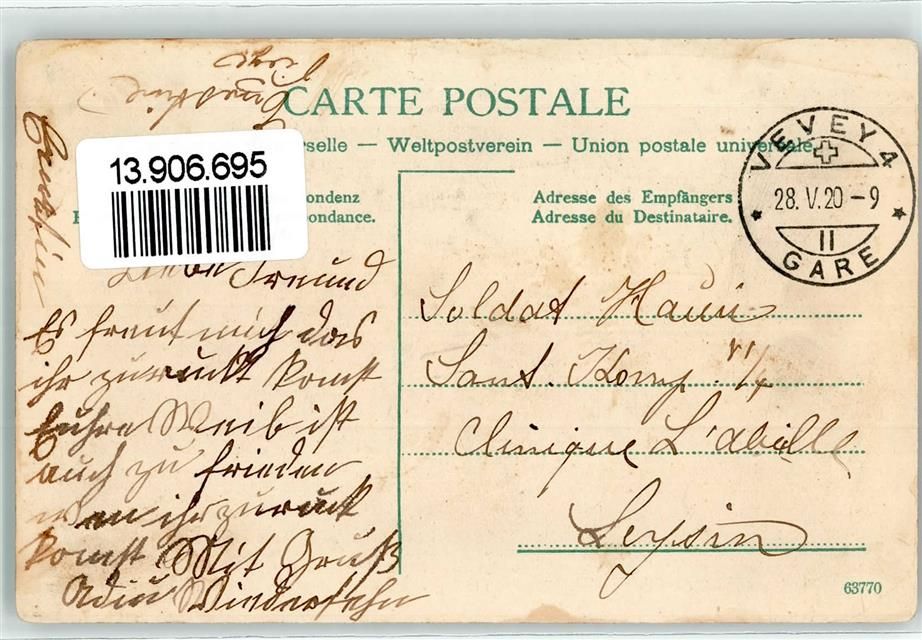 CARTE POSTALE
rselle — Weltpostverein — Union postale universelle
ondenz
ondance.
Adresse des Empfängers
Adresse du Destinataire.
13.906.695
VEVEY 4
28. V. 20 - 9
II
GARE
Liebe Freund
Es freut mich das
ihr zurukt komst
Euhre Weib ist
auch zu frieden
wen ihr zurukt
komst Mit Gruß
Adiu Wiedersehn
Soldat Hauri
Sant. Komp. V/4
Clinique L'abille
Leysin
63770